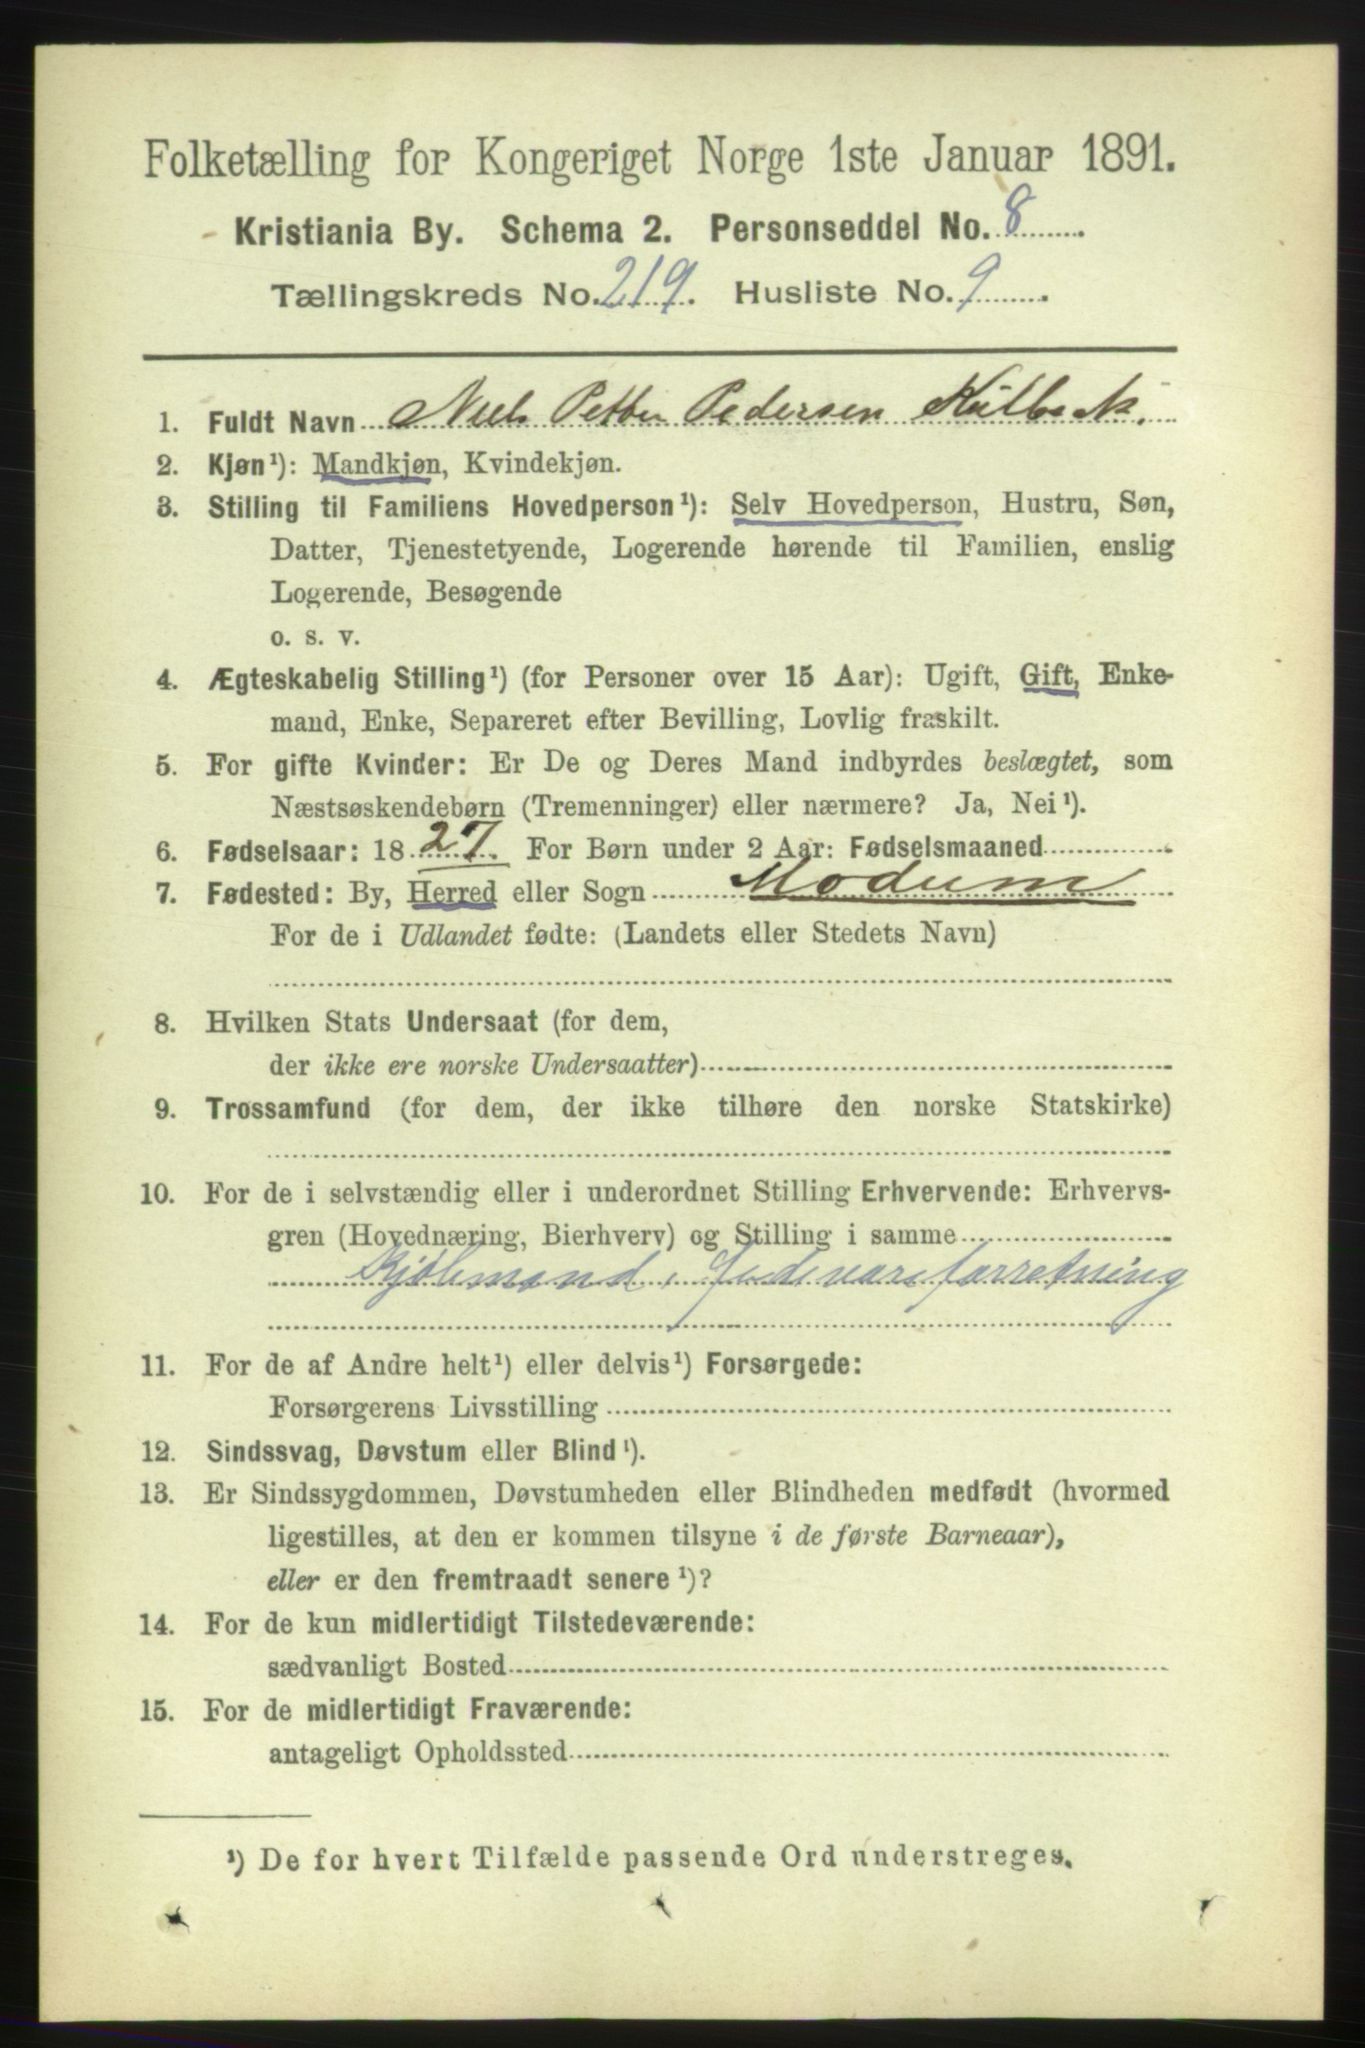 Folketælling for Kongeriget Norge 1ste Januar 1891.
Kristiania By. Schema 2. Personseddel No. 8.
Tællingskreds No. 219. Husliste No. 9.
1. Fuldt Navn Niels Petter Pedersen
2. Kjøn¹): Mandkjøn, Kvindekjøn.
3. Stilling til Familiens Hovedperson¹): Selv Hovedperson, Hustru, Søn,
Datter, Tjenestetyende, Logerende hørende til Familien, enslig
Logerende, Besøgende
o. s. v.
4. Ægteskabelig Stilling¹) (for Personer over 15 Aar): Ugift, Gift, Enke-
mand, Enke, Separeret efter Bevilling, Lovlig fraskilt.
5. For gifte Kvinder: Er De og Deres Mand indbyrdes beslægtet, som
Næstsøskendebørn (Tremenninger) eller nærmere? Ja, Nei¹).
6. Fødselsaar: 1827. For Børn under 2 Aar: Fødselsmaaned
7. Fødested: By, Herred eller Sogn Modum
For de i Udlandet fødte: (Landets eller Stedets Navn)
8. Hvilken Stats Undersaat (for dem,
der ikke ere norske Undersaatter)
9. Trossamfund (for dem, der ikke tilhøre den norske Statskirke)
10. For de i selvstændig eller i underordnet Stilling Erhvervende: Erhvervs-
gren (Hovednæring, Bierhverv) og Stilling i samme
Kjøbmand, forretning
11. For de af Andre helt¹) eller delvis¹) Forsørgede:
Forsørgerens Livsstilling
12. Sindssvag, Døvstum eller Blind¹).
13. Er Sindssygdommen, Døvstumheden eller Blindheden medfødt (hvormed
ligestilles, at den er kommen tilsyne i de første Barneaar),
eller er den fremtraadt senere¹)?
14. For de kun midlertidigt Tilstedeværende:
sædvanligt Bosted
15. For de midlertidigt Fraværende:
antageligt Opholdssted
¹) De for hvert Tilfælde passende Ord understreges.